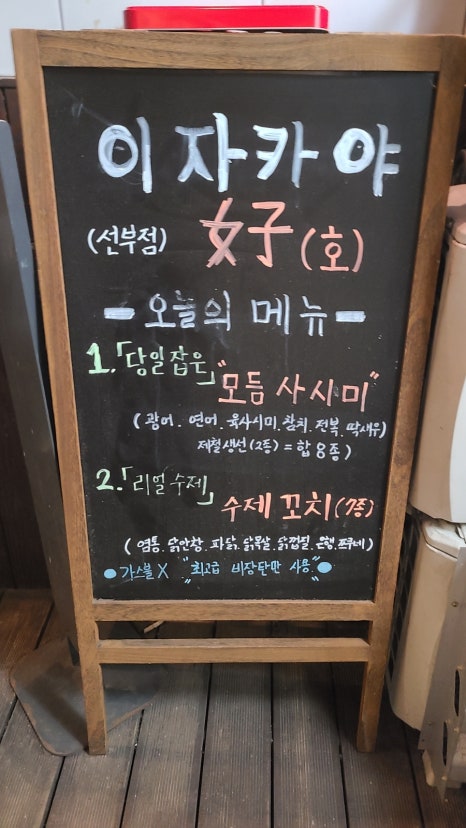 이자카야
(선부점) 好 (호)
-오늘의 메뉴-
1.「당일잡은」 "모듬 사시미"
(광어. 연어. 육사시미. 참치. 전복. 딱새우
제철생선(2종) = 합 8종)
2.「리얼 수제」 수제 꼬치(7종)
(염통. 닭안창. 파닭. 닭목살. 닭껍질. 은행. 쯔쿠네)
•가스불X "최고급 비장탄만 사용."•